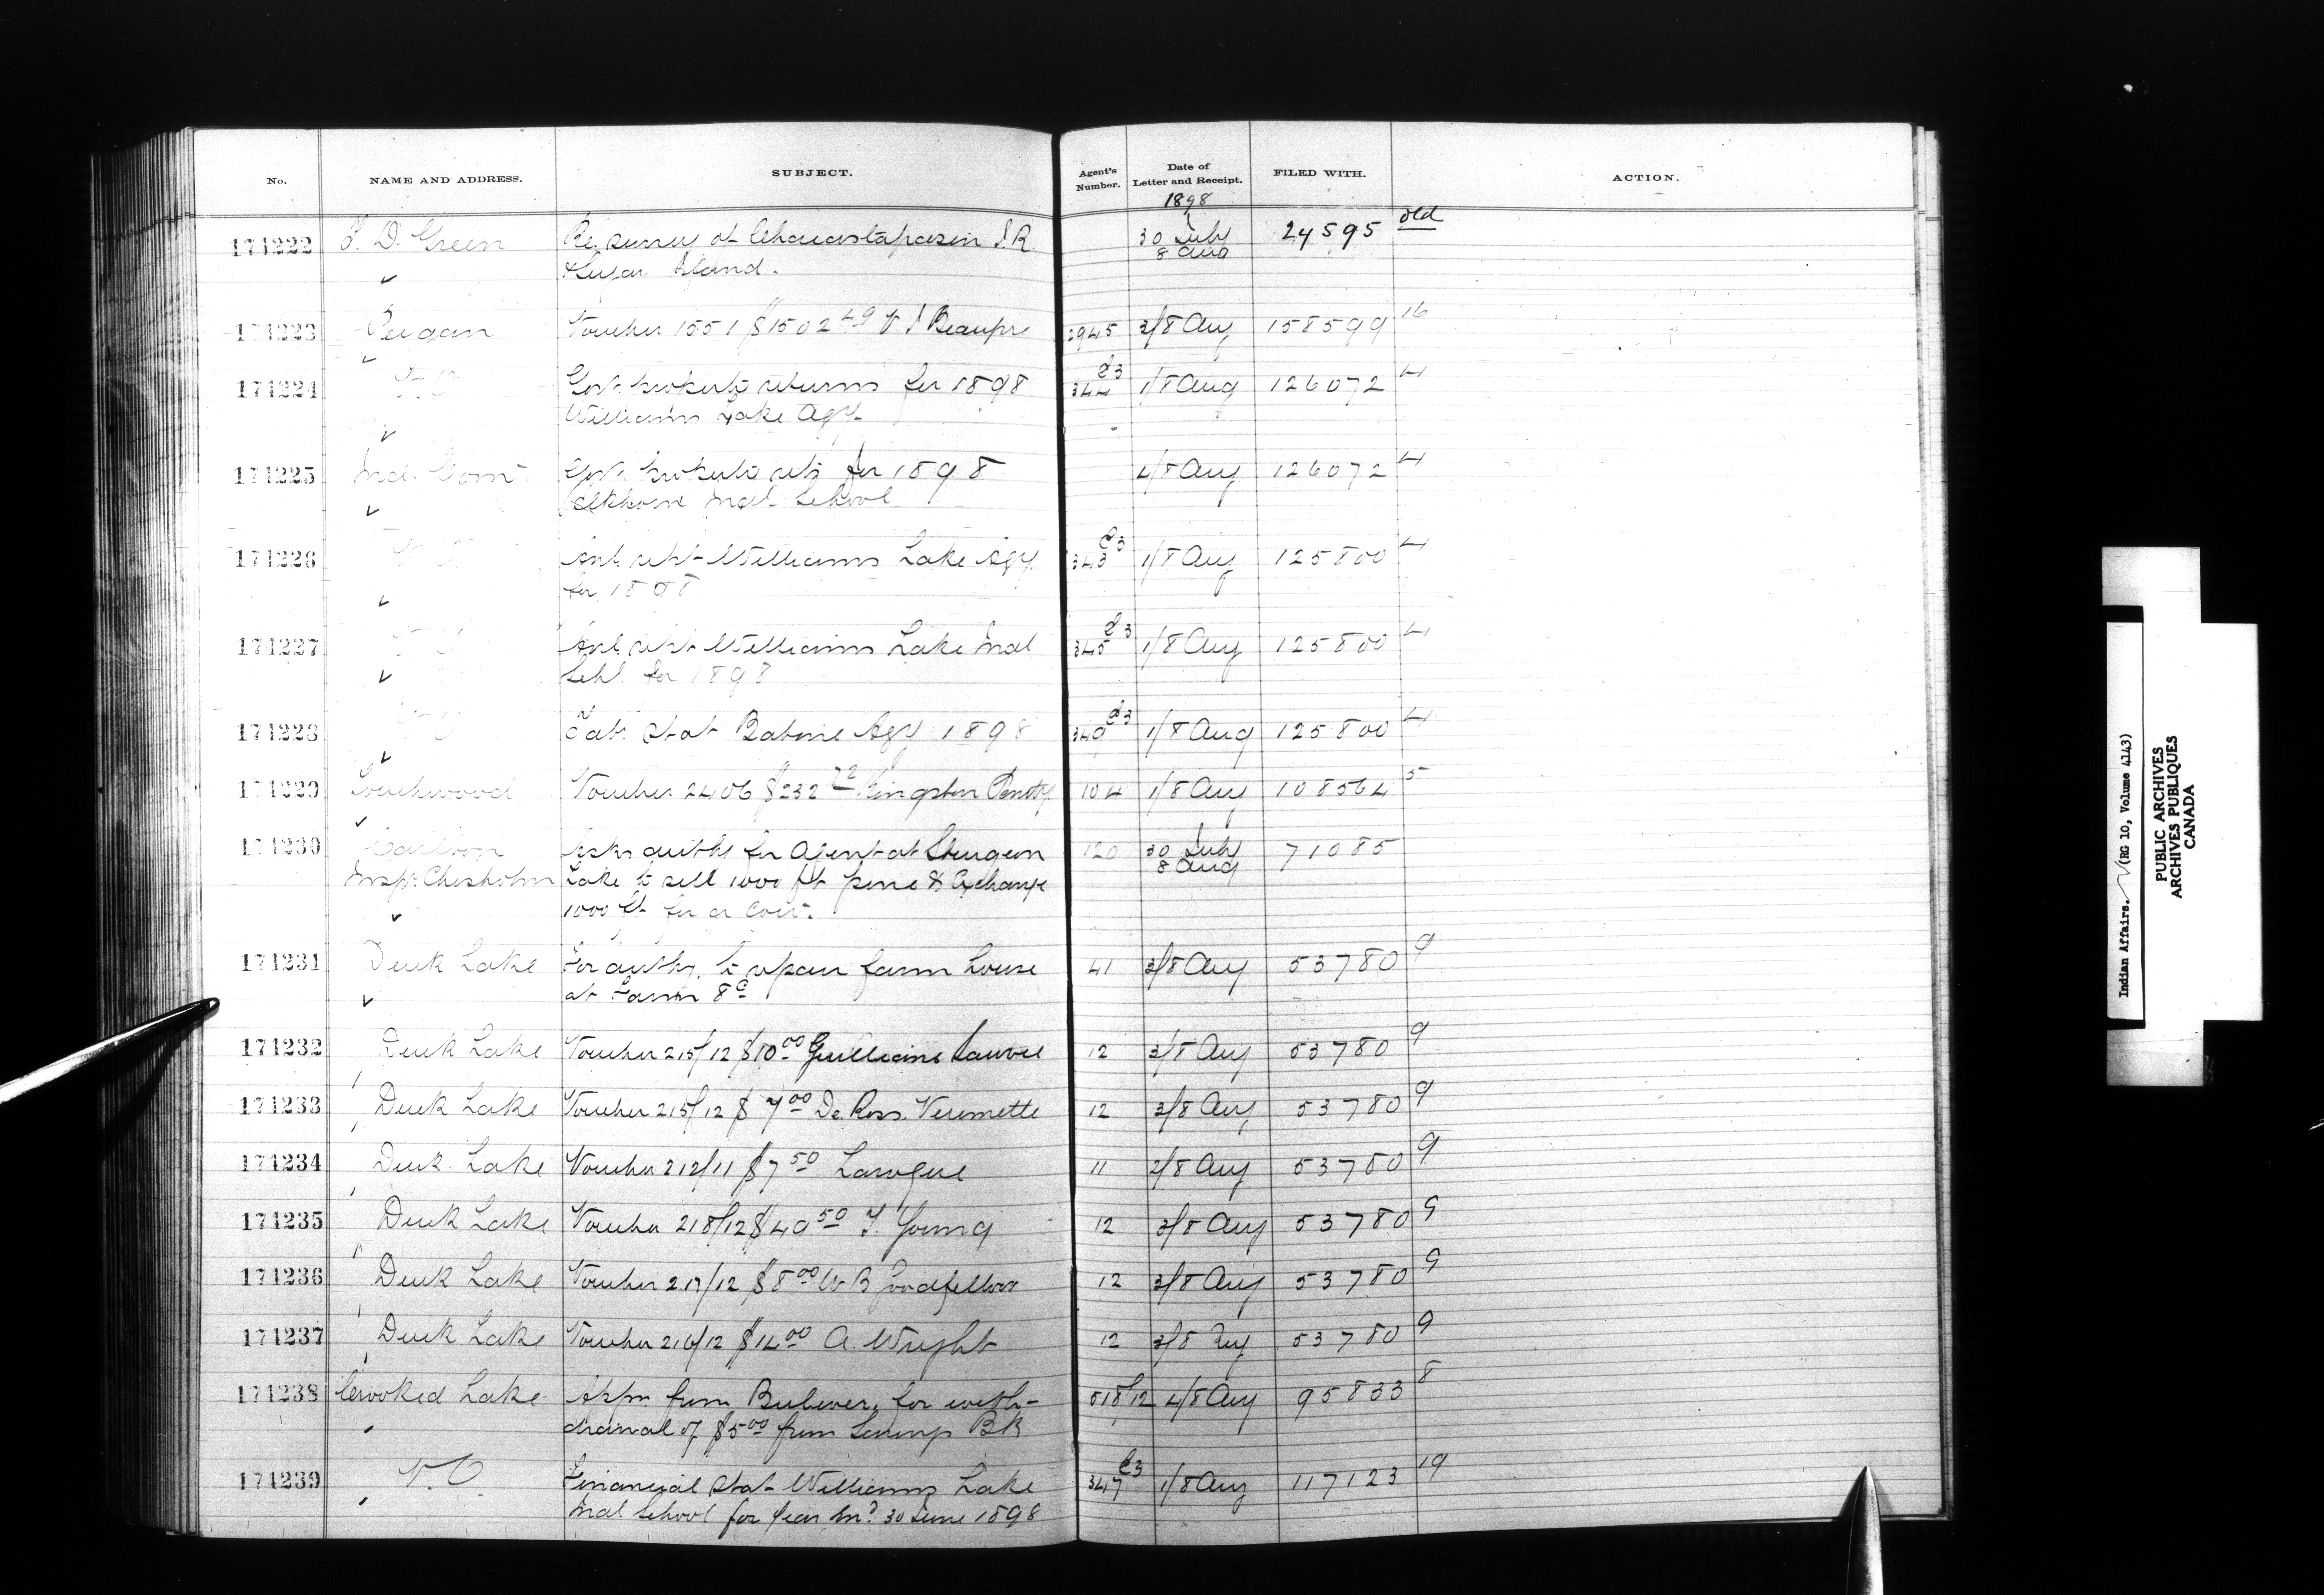 No. NAME AND ADDRESS. SUBJECT. Agent's Number. Date of Letter and Receipt. FILED WITH. ACTION.
1898
174222 T. D. Green Re. survey of Chacastapasin I R 30 July 24595 old
8 Aug
& Sugar Island.
174223 Peigan Voucher 1551 $1502 49 V J Beaupre 2945 3/8 Aug 158599 16
174224 V.O. Govt. property returns for 1898 344 C3 1/8 Aug 126072 4
Williams Lake Agy.
174225 Ind. Comr. Govt. property rets for 1898 4/8 Aug 126072 4
Elkhorn Indl. School
174226 V.O. Anl. rept Williams Lake Agy. 343 C3 1/8 Aug 125800 4
for 1898
174227 V.O. Anl. rept Williams Lake Indl 345 C3 1/8 Aug 125800 4
Schl. for 1898
174228 V.O. Tab. Stat Babine Agy 1898 349 C3 1/8 Aug 125800 4
174229 Touchwood Voucher 2406 $232 72 Kingston Penty. 104 1/8 Aug 108564 5
174230 Carlton Asks authy for Agent at Sturgeon 120 30 July 71085
8 Aug
Inspr. Chisholm Lake to sell 1000 ft pine & exchange
1000 ft for a cow.
174231 Duck Lake For authy. to repair farm house 41 3/8 Aug 53780 9
at Farm 8c
174232 Duck Lake Voucher 215/12 $10 00 Guilliaine Sauve 12 3/8 Aug 53780 9
174233 Duck Lake Voucher 215/12 $7 00 De. Ross. Vermette 12 3/8 Aug 53780 9
174234 Duck Lake Voucher 212/11 $7 50 Laroque 11 2/8 Aug 53780 9
174235 Duck Lake Voucher 218/12 $49 50 T. Young 12 3/8 Aug 53780 9
174236 Duck Lake Voucher 217/12 $8 00 W B Goodfellow 12 3/8 Aug 53780 9
174237 Duck Lake Voucher 216/12 $14 00 A. Wright 12 3/8 Aug 53780 9
174238 Crooked Lake Appn. from Bulwer, for with- 518/12 4/8 Aug 95833 8
drawal of $5 00 from Savings Bk
174239 V.O. Financial Stat Williams Lake 347 C3 1/8 Aug 117123 19
Indl School for year end. 30 June 1898
Indian Affairs. (RG 10, Volume 4143)
PUBLIC ARCHIVES
ARCHIVES PUBLIQUES
CANADA